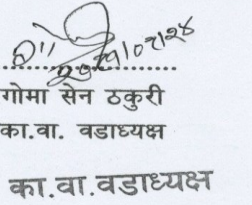 गोमा सेन ठकुरी
का.वा. वडाध्यक्ष
का.वा.वडाध्यक्ष